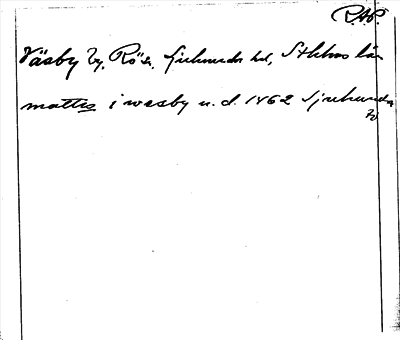 R.A.P.
Väsby by, Rö sn, Sjuhunda hd, Sthlms län
mattis i wæsby u. d. 1462 Sjuhunda